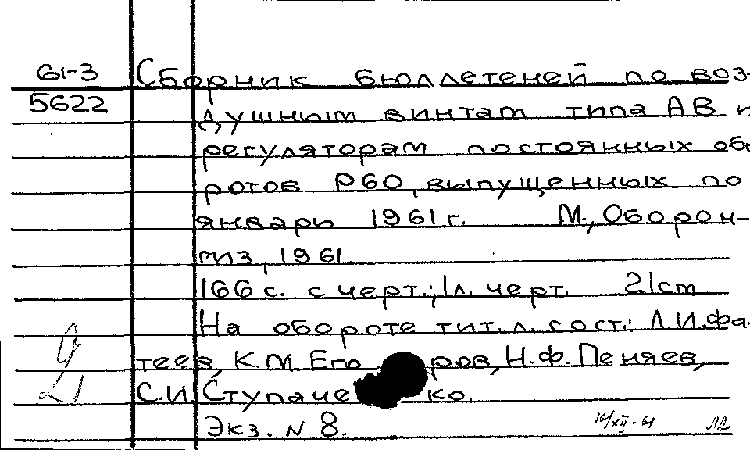 61-3 Сборник бюллетеней по воз-
5622 душным винтам типа АВ и
регуляторам постоянных обо
ротов Р60, выпущенных по
январь 1961 г. М., Оборон-
гиз, 1961
166 с. с черт.; 1 л. черт. 21 cm
На обороте тит. л. сост.: Л.И. Фа-
теев, К.М. Его ров, Н.Ф. Пеняев,
С.И. Ступаче ко.
Экз. N 8.